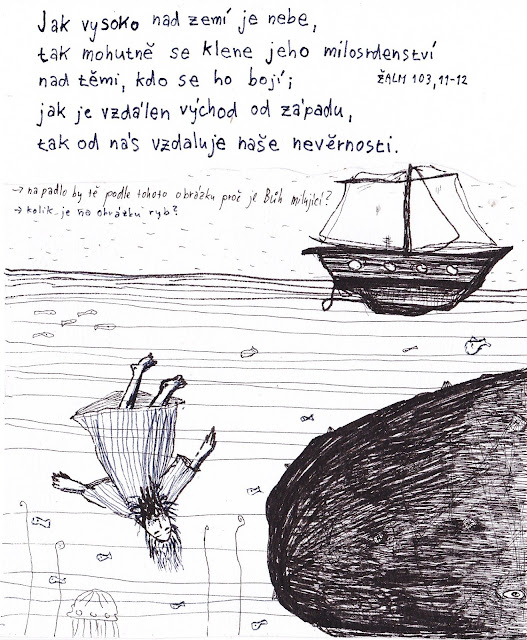 Jak vysoko nad zemí je nebe,
tak mohutně se klene jeho milosrdenství
nad těmi, kdo se ho bojí;
ŽALM 103,11-12
jak je vzdálen východ od západu,
tak od nás vzdaluje naše nevěrnosti.
→ napadlo by tě podle tohoto obrázku proč je Bůh milující?
→ kolik je na obrázku ryb?